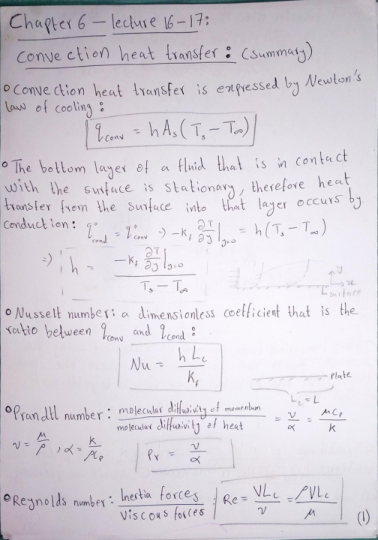 Chapter 6 – lecture 16-17:
Convection heat transfer: (summary)
o Convection heat transfer is expressed by Newton's
law of cooling:
q̇conv = hAs(Ts − T∞)
o The bottom layer of a fluid that is in contact
with the surface is stationary, therefore heat
transfer from the surface into that layer occurs by
conduction: q̇"cond = q̇"conv ⇒ −kf ∂T/∂y|y=0 = h(Ts − T∞)
⇒ h = (−kf ∂T/∂y|y=0) / (Ts − T∞)
y
x
surface
o Nusselt number: a dimensionless coefficient that is the
ratio between q̇conv and q̇cond:
Nu = h Lc / kf
plate
Lc = L
o Prandtl number: molecular diffusivity of momentum / molecular diffusivity of heat = ν/α = μCp/k
ν = μ/ρ, α = k/ρCp
Pr = ν/α
o Reynolds number: Inertia forces / Viscous forces : Re = VLc/ν = ρVLc/μ
(1)